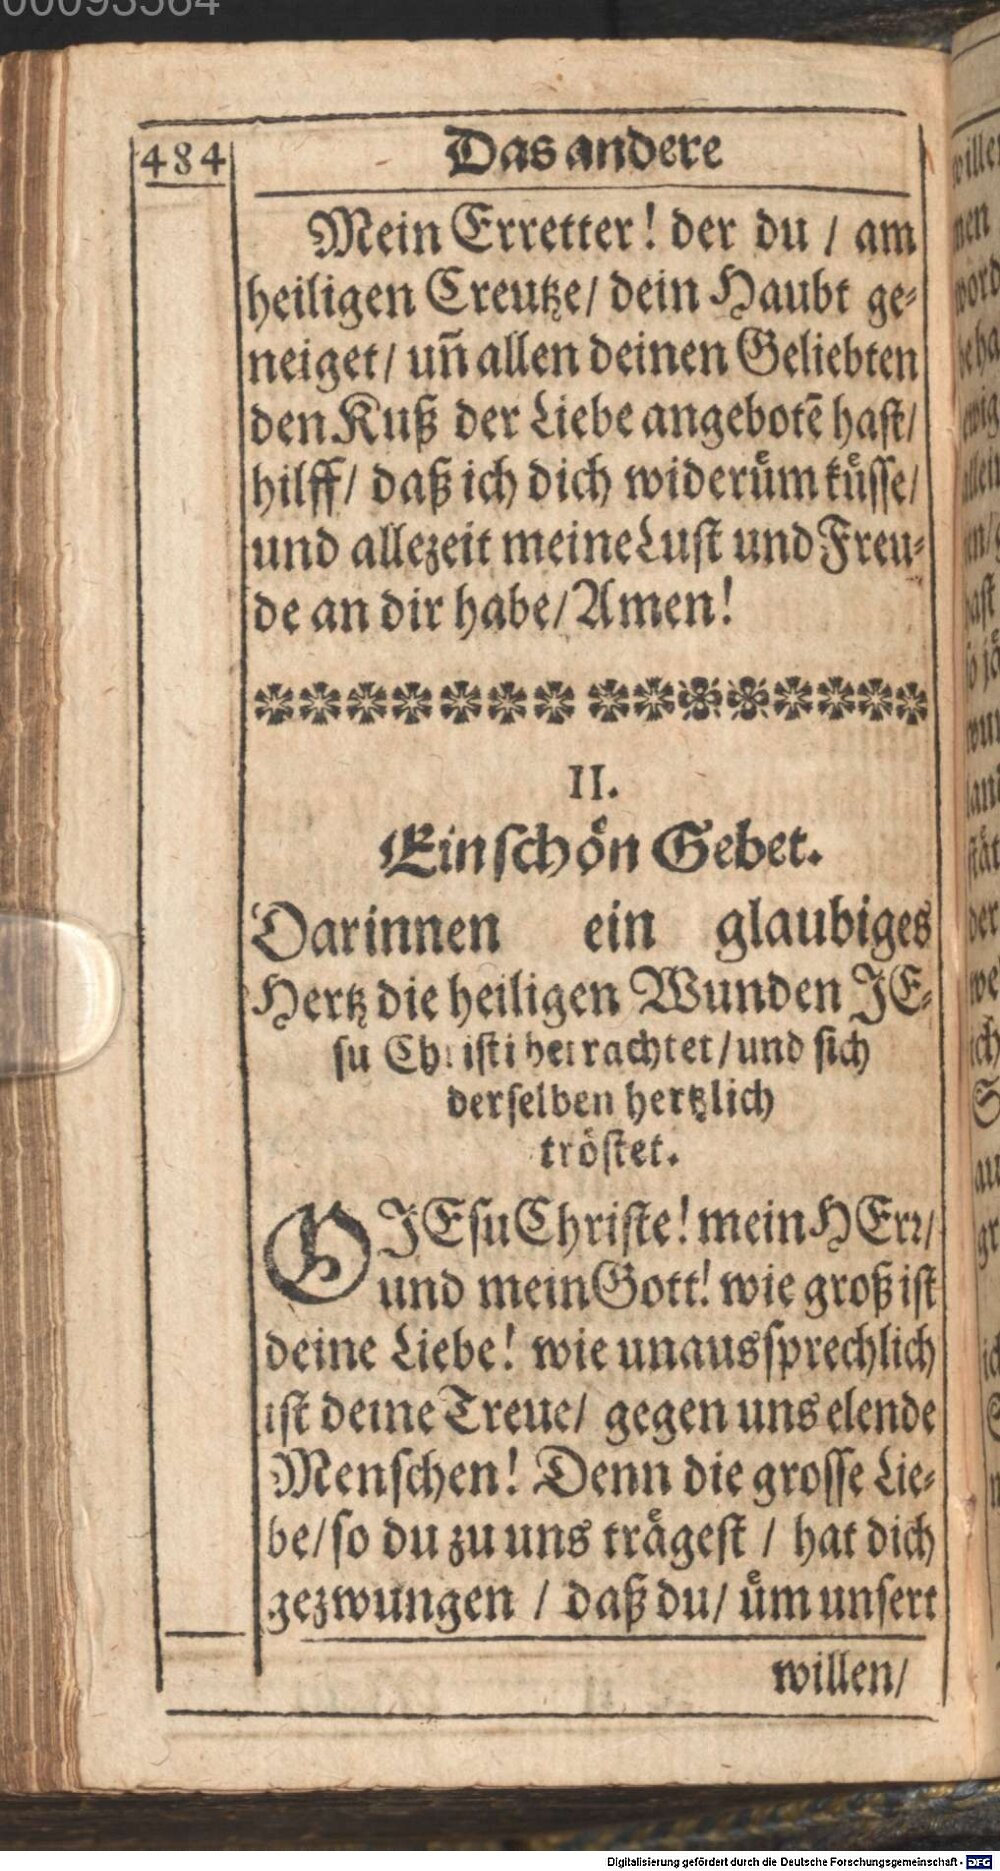 00093564
484
Das andere
Mein Erretter! der du / am
heiligen Creutze/ dein Haubt ge-
neiget/ uñ allen deinen Geliebten
den Kuß der Liebe angebotẽ hast/
hilff/ daß ich dich widerüm küsse/
und allezeit meine Lust und Freu-
de an dir habe/ Amen!
II.
Ein schön Gebet.
Darinnen ein glaubiges
Hertz die heiligen Wunden JE-
su Christi betrachtet/ und sich
derselben hertzlich
tröstet.
O JEsu Christe! mein HErr/
und mein Gott! wie groß ist
deine Liebe! wie unaussprechlich
ist deine Treue/ gegen uns elende
Menschen! Denn die grosse Lie-
be/ so du zu uns trägest / hat dich
gezwungen / daß du/ üm unsert
willen/
Digitalisierung gefördert durch die Deutsche Forschungsgemeinschaft - DFG